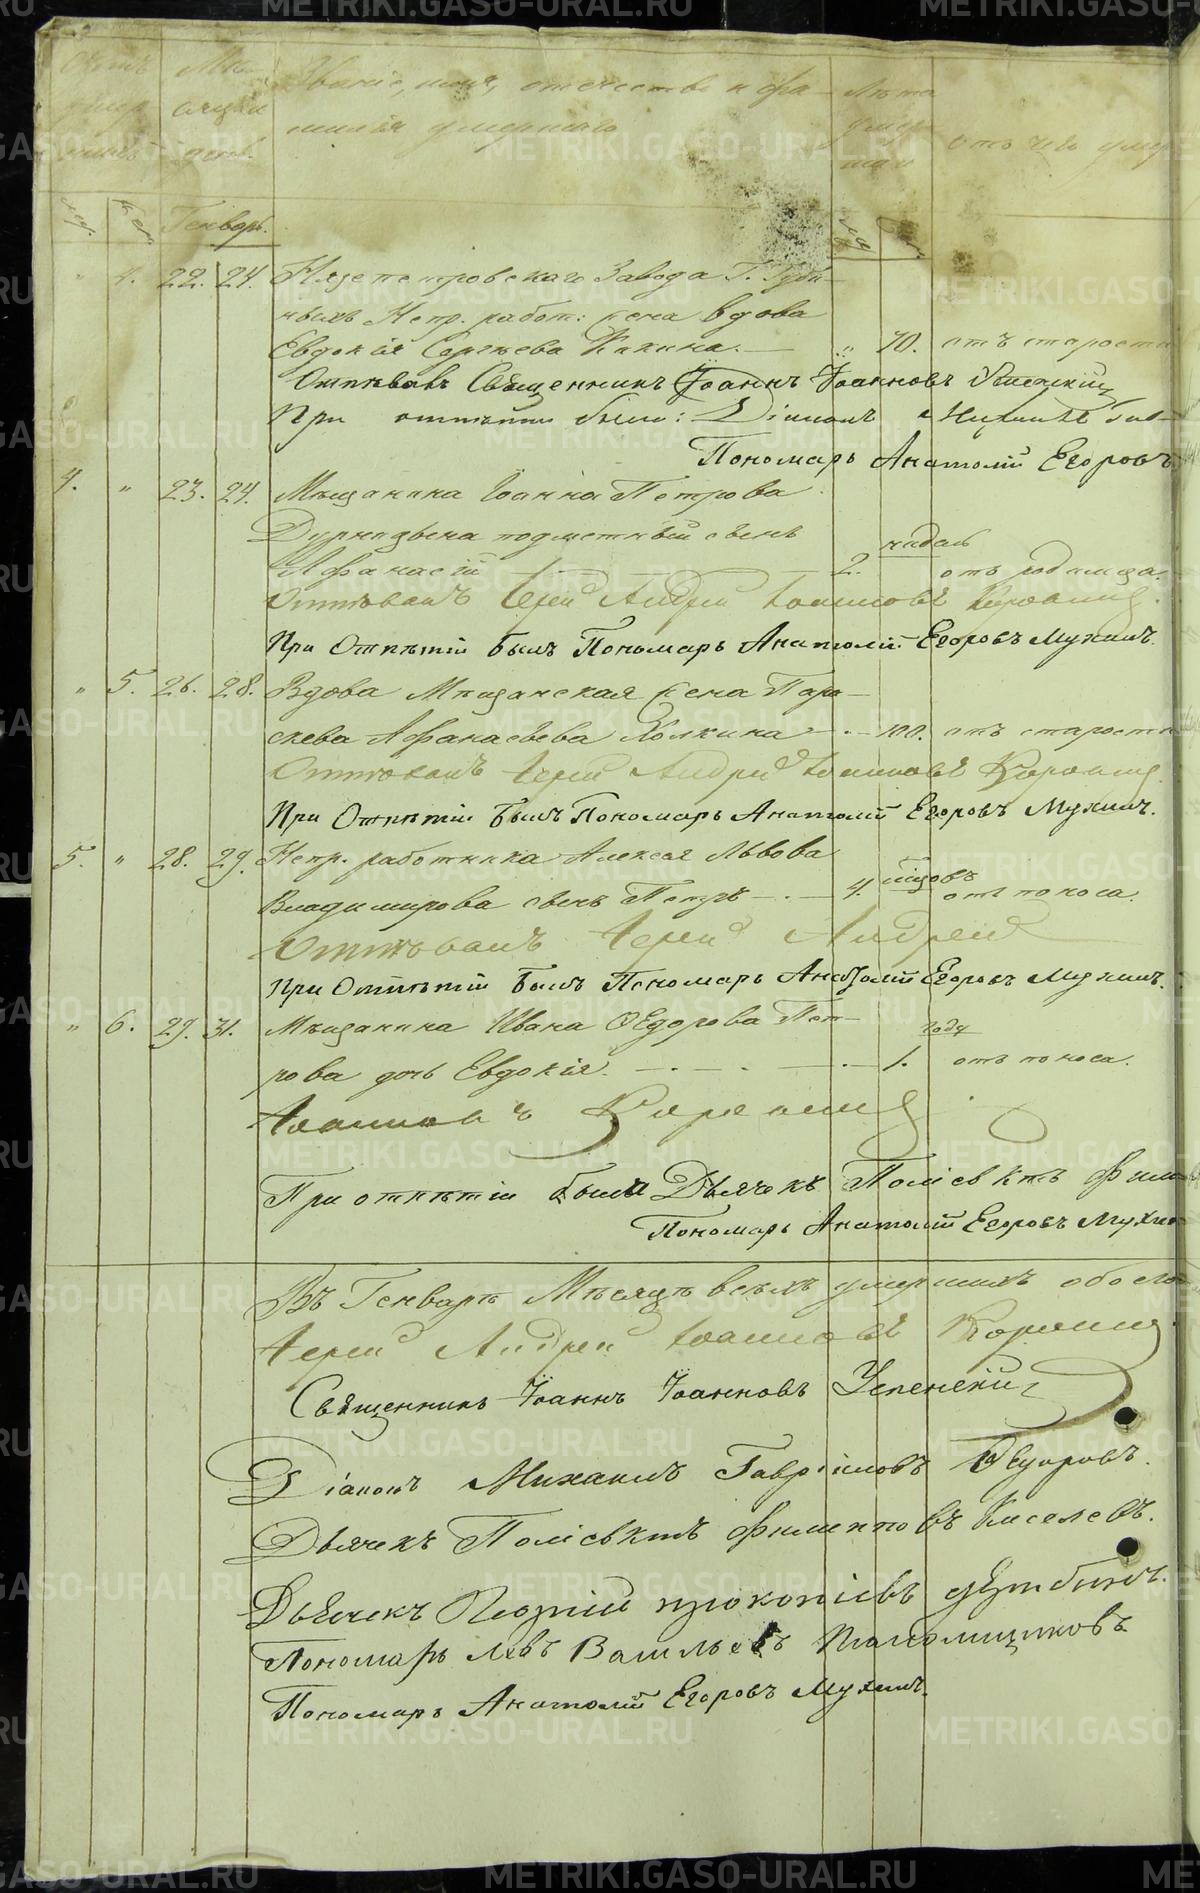 METRIKI.GASO-URAL.RU
Счетъ умершихъ Мѣсяцъ и день Званіе, имя, отечество и фамилія умершаго Лѣта умершаго отъ чего умеръ
Генварь
" 4. 22. 24. Нязепетровскаго Завода Г.
ныхъ Непр. работ: жена вдова
Евдокія Сергѣева Кикина. — " 70. отъ старости
Отпѣвалъ Священникъ Іоаннъ Іоанновъ Успенскій
При отпѣтіи были: Діаконъ Михаилъ Гав-
Пономарь Анатолій Егоровъ
4. " 23. 24. Мѣщанина Іоанна Петрова
подметный сынъ недѣль
Афанасій 2. отъ родимца.
Отпѣвалъ Іерей Андрей Іоанновъ
При Отпѣтіи былъ Пономарь Анатолій Егоровъ Мухинъ.
" 5. 26. 28. Вдова Мѣщанская жена Пара-
скева Афанасьева Холкина — 100. отъ старости
Отпѣвалъ Іерей Андрей Іоанновъ
При Отпѣтіи былъ Пономарь Анатолій Егоровъ Мухинъ.
5. " 28. 29. Непр. работника Алексея Львова
Владимирова сынъ Петръ — . — 4. мѣсяцовъ отъ поноса.
Отпѣвалъ Іерей Андрей
При Отпѣтіи былъ Пономарь Анатолій Егоровъ Мухинъ.
" 6. 29. 31. Мѣщанина Ивана Ѳедорова Пет-
рова дочь Евдокія. — . — . — 1. году отъ поноса.
Іоанновъ
При отпѣтіи были Дьячекъ Поліевктъ Фили
Пономарь Анатолій Егоровъ Мухин
Въ Генварѣ Мѣсяцѣ всѣхъ умершихъ обоего
Іерей Андрей Іоанновъ
Священникъ Іоаннъ Іоанновъ Успенскій
Діаконъ Михаилъ Гавріиловъ Ѳедоровъ.
Дьячекъ Поліевктъ Филипповъ Киселевъ.
Дьячекъ Прокопіевъ
Пономарь Левъ Васильевъ
Пономарь Анатолій Егоровъ Мухинъ.